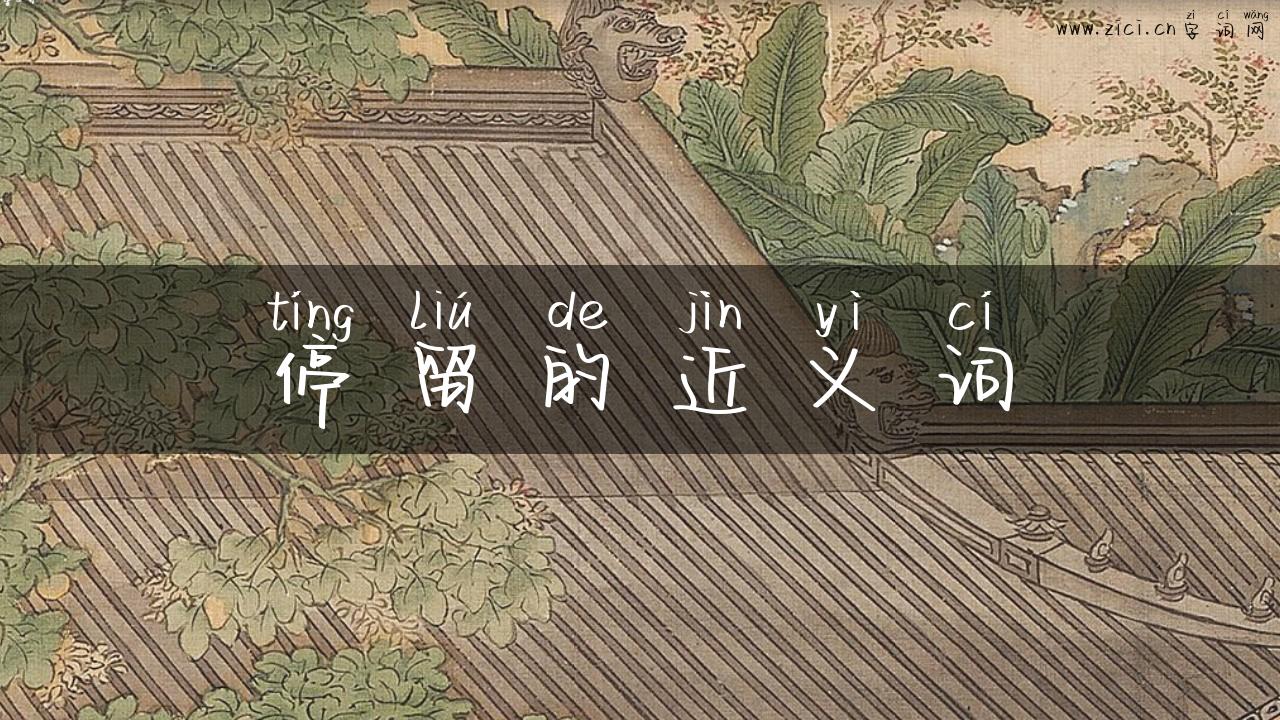 zì cí wǎng
www.zici.cn 字 词 网
tíng liú de jìn yì cí
停 留 的 近 义 词